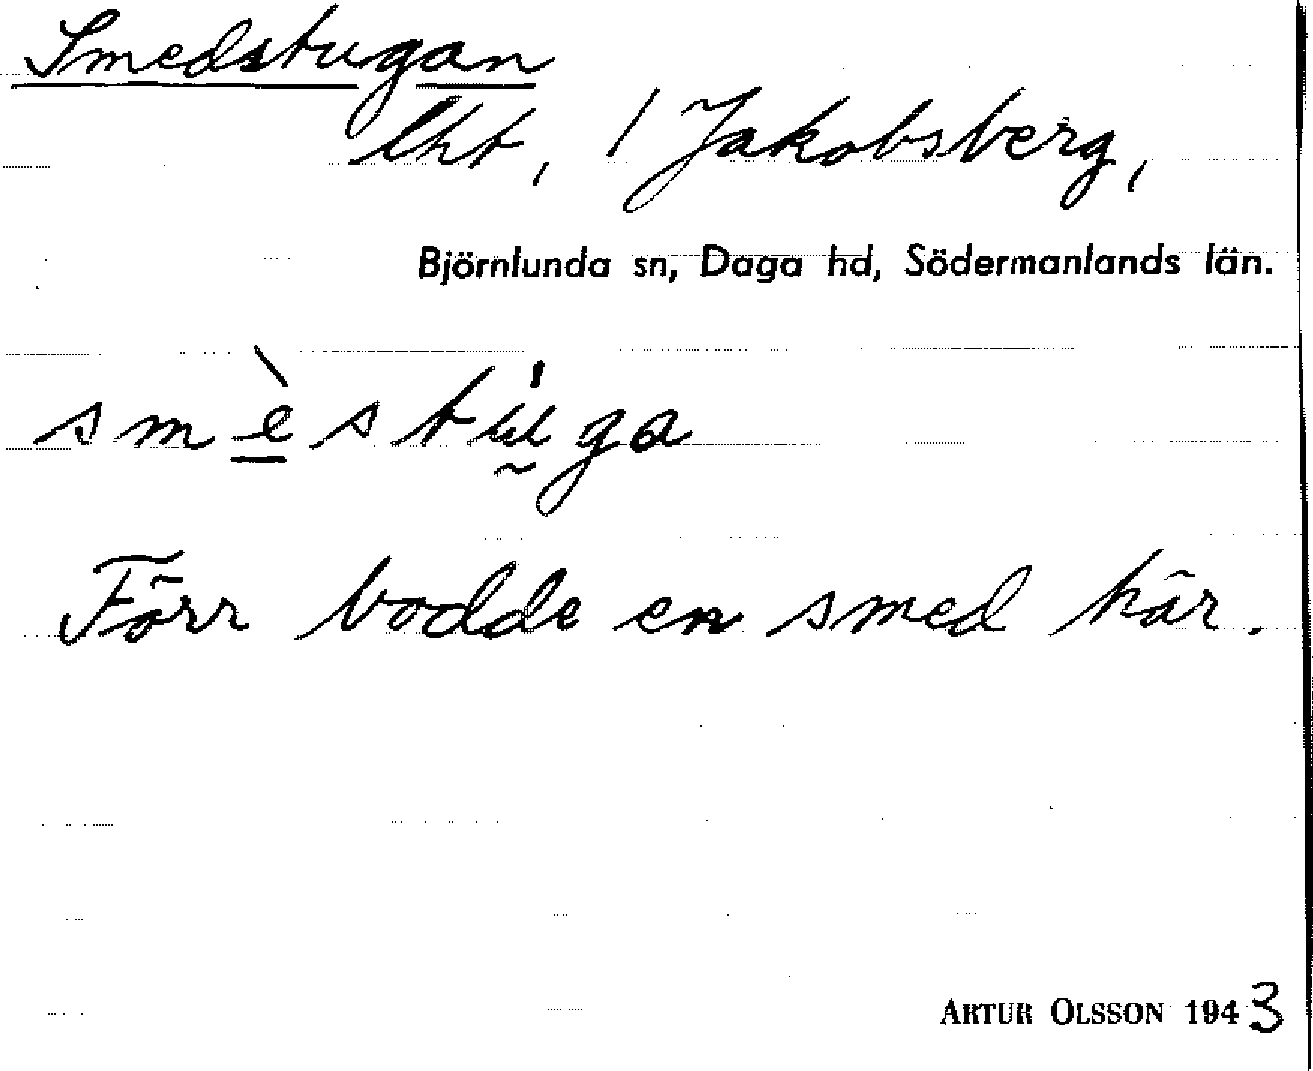 Smedstugan
lht, 1 Jakobsberg,
Björnlunda sn, Daga hd, Södermanlands län.
smèstṵ̍ga
Förr bodde en smed här.
ARTUR OLSSON 1943